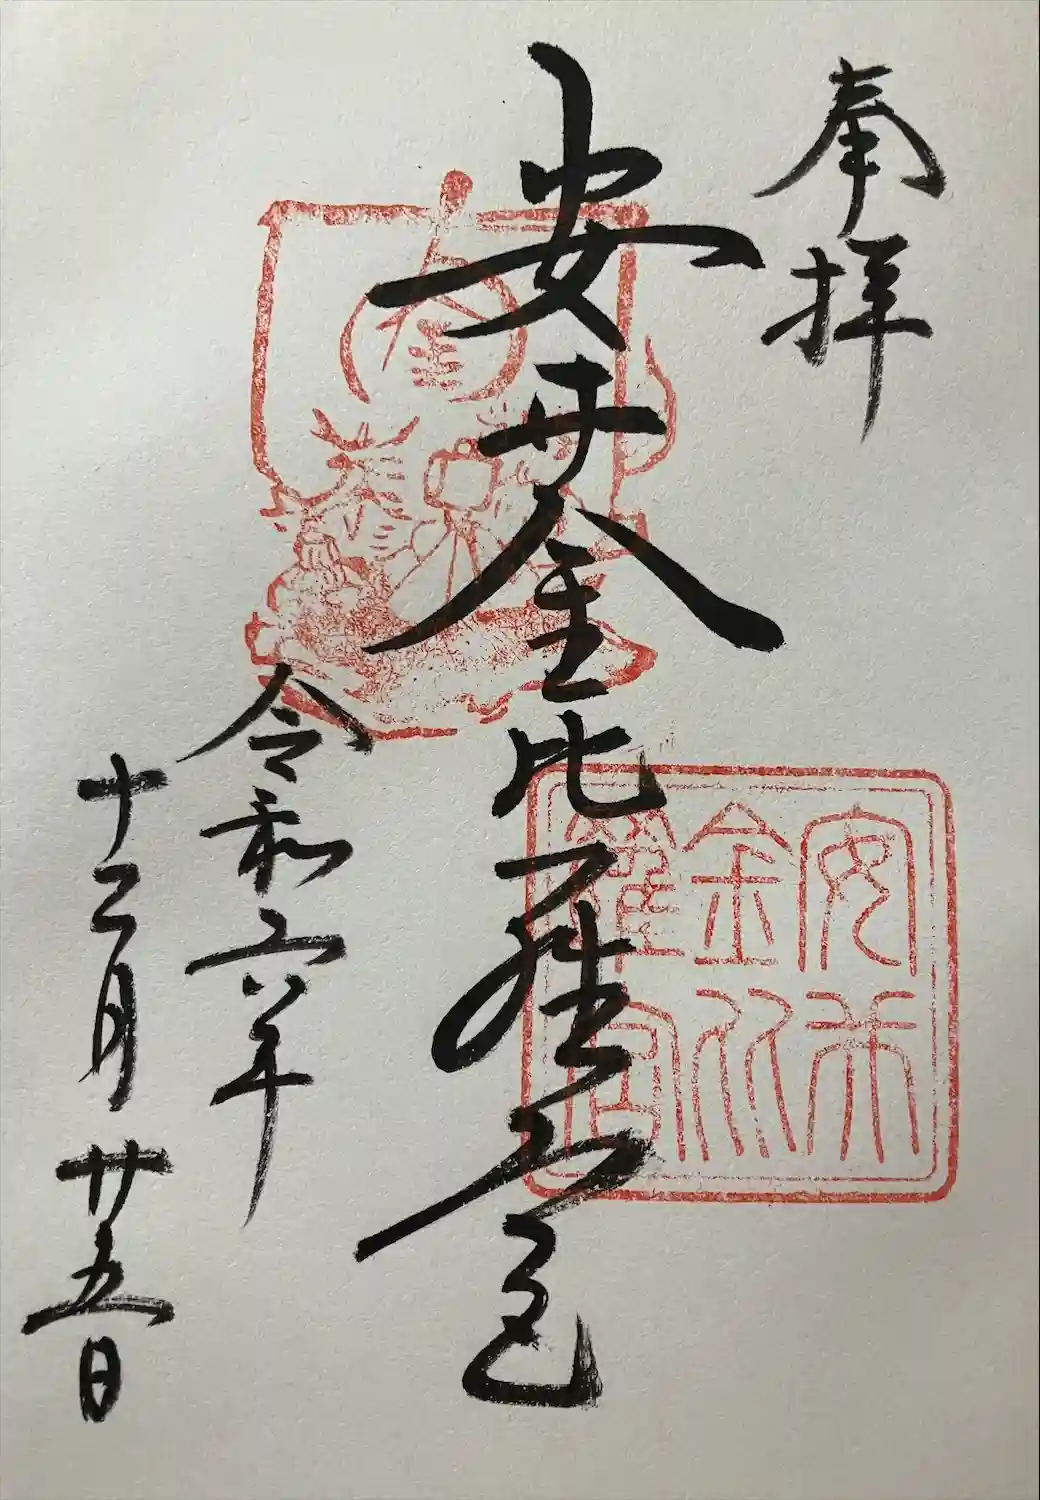 奉拝
安井金比羅宮
安井
金比
羅宮
令和六年
十二月廿五日